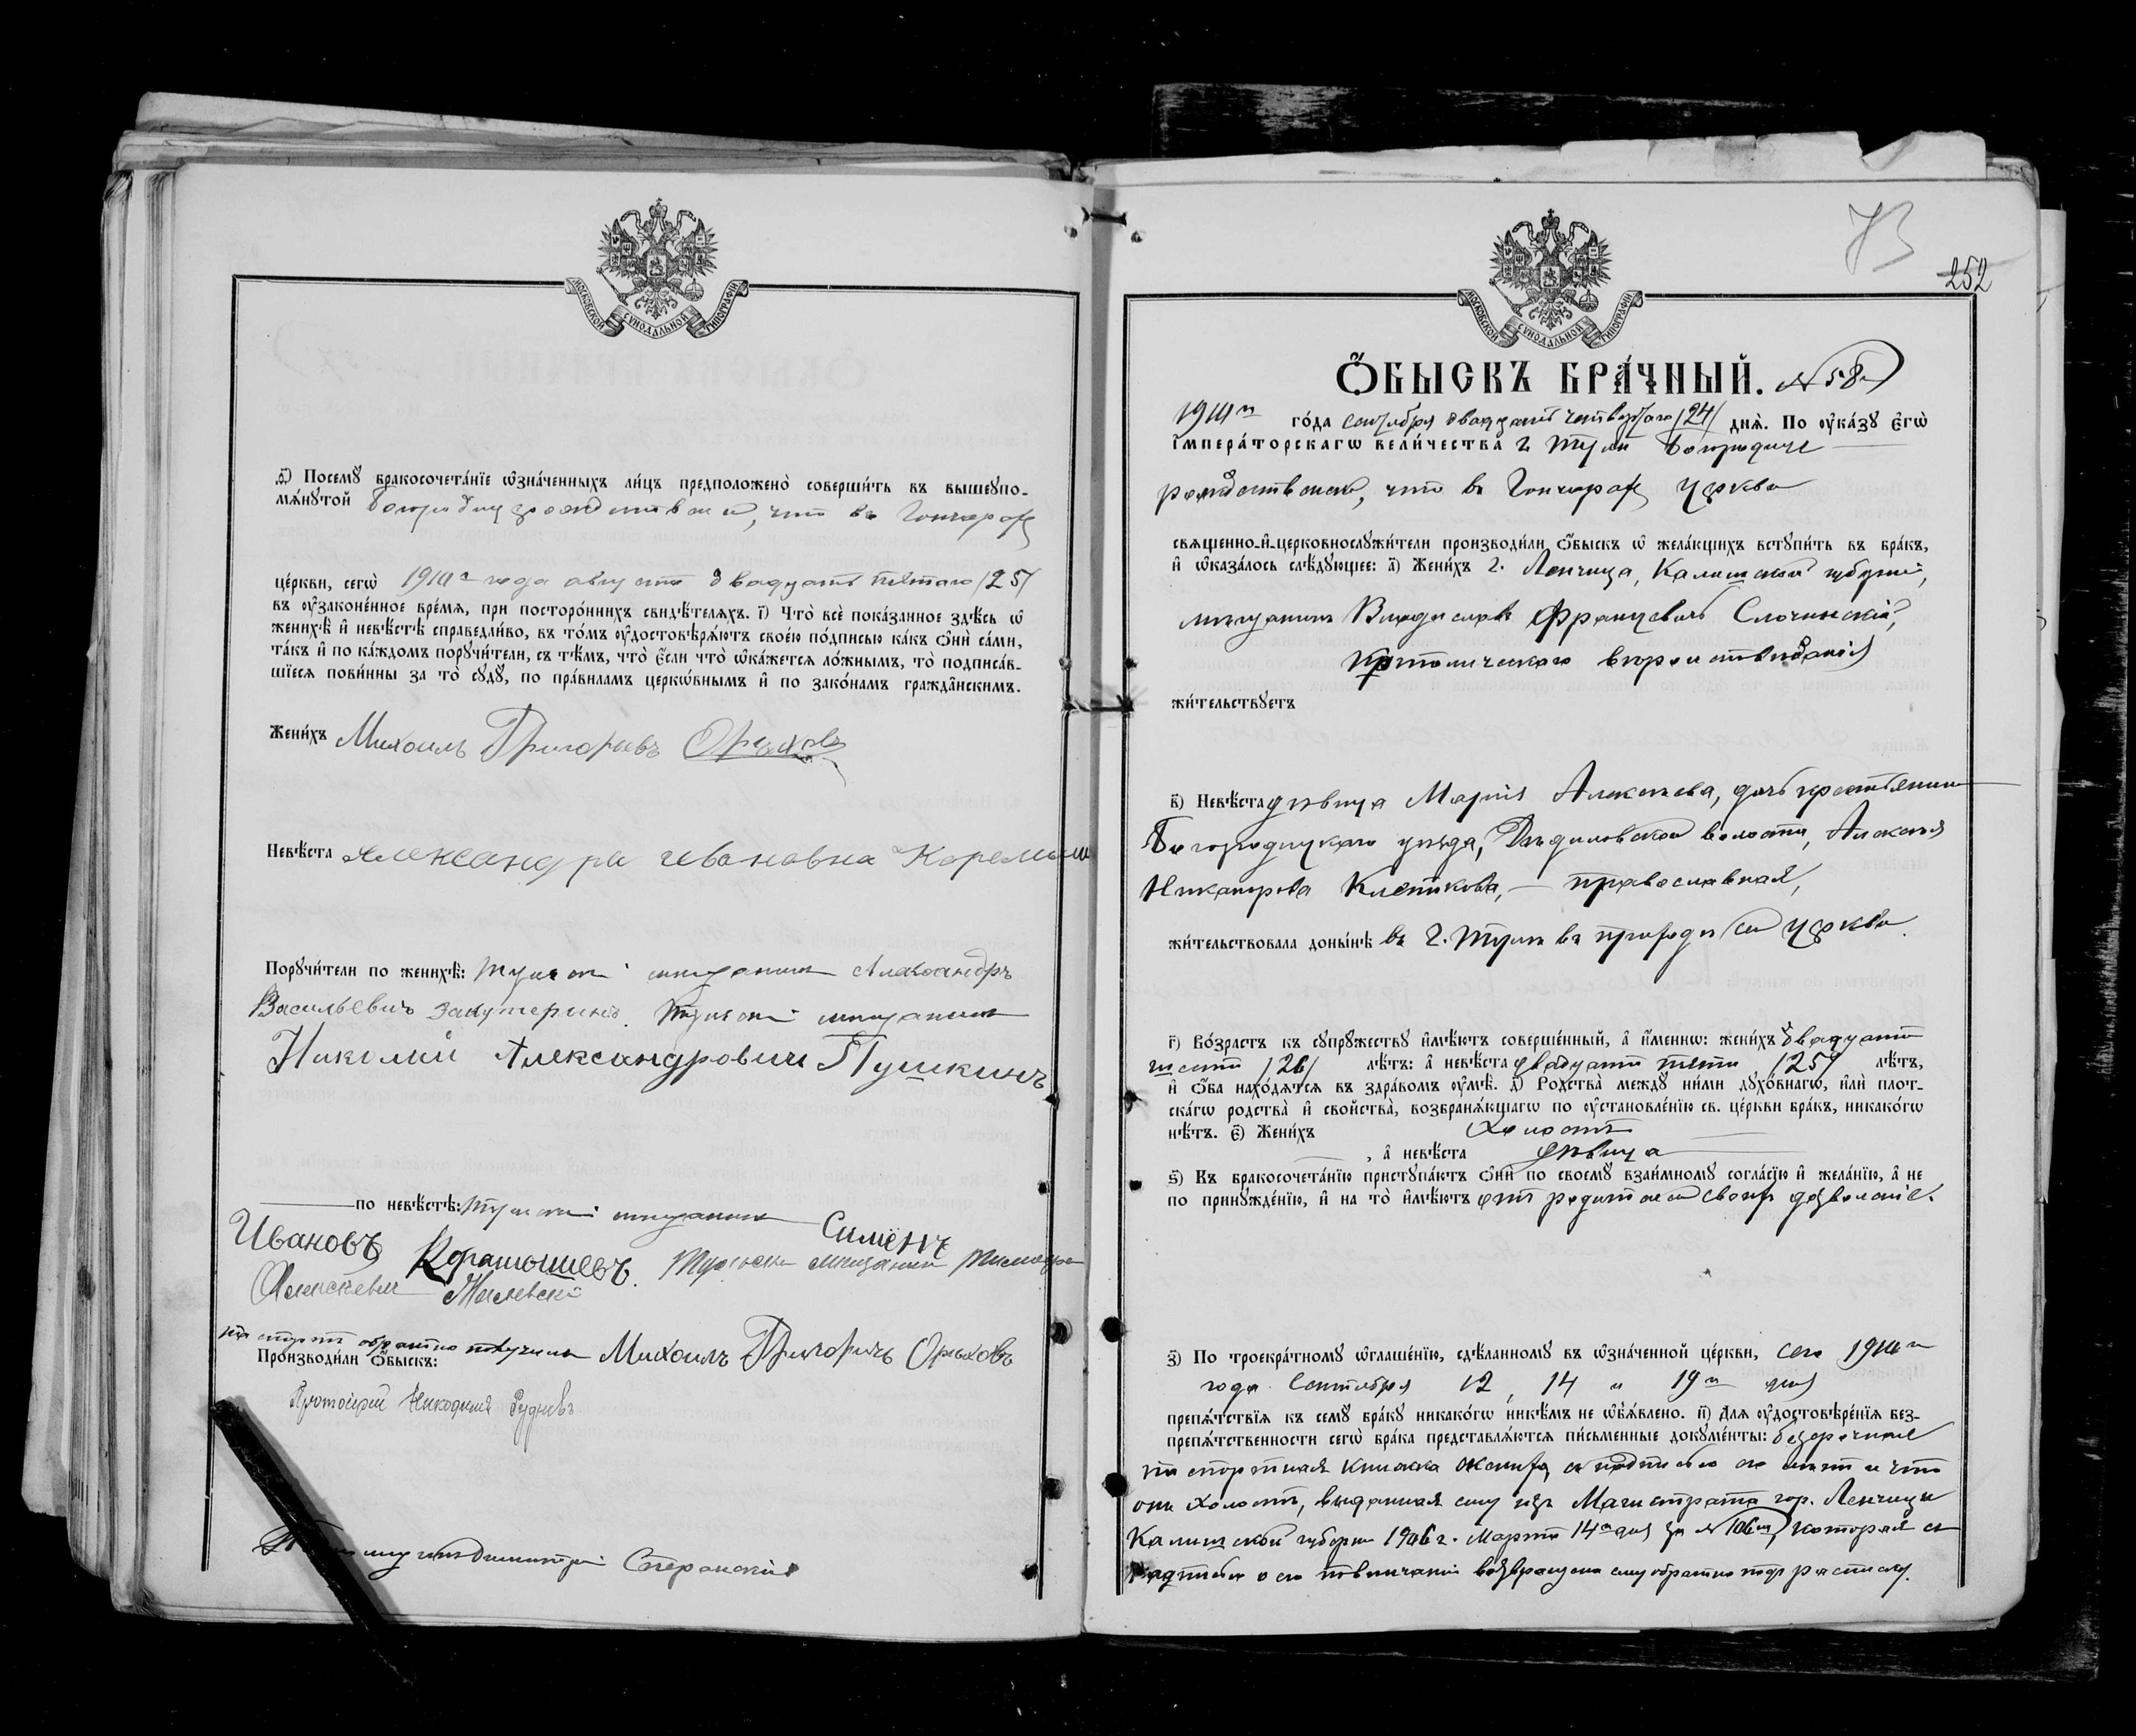 МОСКОВСКОЙ СѴНОДАЛЬНОЙ ТИПОГРАФІИ
ѳ҃) Посемꙋ̀ бракосочета́нїе ѡ҆зна́ченныхъ ли́цъ предположено̀ соверши́ть въ вышеꙋпо-
мѧ́нꙋтой Богородицерождественской, что въ Гончарахъ
це́ркви, сегѡ̀ 1910 года августа двадцать пятаго /25/
въ ᲂу҆законе́нное вре́мѧ, при посторо́ннихъ свидѣ́телѧхъ. і҃) Что̀ всѐ пока́занное здѣ́сь ѡ҆
женихѣ̀ и҆ невѣ́стѣ справедли́во, въ то́мъ ᲂу҆достовѣрѧ́ютъ свое́ю по́дписью ка́къ ѻ҆нѝ са́ми,
та́къ и҆ по ка́ждомъ порꙋчи́тели, съ тѣ́мъ, что̀ є҆́сли что̀ ѡ҆ка́жетсѧ ло́жнымъ, то̀ подписа́в-
шїесѧ пови́нны за то̀ сꙋдꙋ̀, по пра́виламъ церкѡ́внымъ и҆ по зако́намъ гражда̂нскимъ.
Жени́хъ Михаилъ Григорьевъ Орѣховъ
Невѣ́ста Александра Ивановна
Порꙋчи́тели по женихѣ̀: Тульскій мѣщанинъ Александръ
Васильевичъ Тульскій мѣщанинъ
Николай Александровичъ Пушкинъ
по невѣ́стѣ: Тульскій мѣщанинъ Симёнъ
Ивановъ Тульскій мѣщанинъ
Алексѣевич
паспортъ обратно получилъ Михаилъ Григоричъ Орѣховъ
Производи́ли ѻ҆́быскъ:
Протоіерей Никодимъ Рудневъ
Сперанскій
73
252
МОСКОВСКОЙ СѴНОДАЛЬНОЙ ТИПОГРАФІИ
Ѻ҆́БЫСКЪ БРА́ЧНЫЙ. № 58
1910 го́да сентября двадцать четвертаго /24/ днѧ̀. По ᲂу҆ка́зꙋ є҆гѡ̀
і҆мпера́торскагѡ вели́чества г Тулы Богородице
рождественской, что въ Гончарахъ церкви
свѧще́нно-и҆-церковнослꙋжи́тели производи́ли ѻ҆́быскъ ѡ҆ жела́ющихъ встꙋпи́ть въ бра́къ,
и҆ ѡ҆каза́лось слѣ́дꙋющее: а҃) Жени́хъ г. Ленчица, Калишской губерніи,
мѣщанинъ Владиславъ Францевичъ Слочинскій,
Католическаго вѣроисповѣданія
жи́тельствꙋетъ
в҃) Невѣ́ста дѣвица Марія Алексѣева, дочь крестьянина
Богородицкаго уѣзда, Дѣдиловской волости, Алексѣя
Никанорова Клетикова, — православная,
жи́тельствовала доны́нѣ въ г. Тулѣ въ приходѣ сей церкви
г҃) Во́зрастъ къ сꙋпрꙋ́жествꙋ и҆мѣ́ютъ соверше́нный, а҆ и҆́менно: жени́хъ двадцати
шести /26/ лѣ́тъ: а҆ невѣ́ста двадцати пяти /25/ лѣ́тъ,
и҆ ѻ҆́ба нахо́дѧтсѧ въ здра́вомъ ᲂу҆мѣ̀. д҃) Родства̀ междꙋ̀ ни́ми дꙋхо́внагѡ, и҆лѝ плот-
ска́гѡ родства̀ и҆ сво́йства, возбранѧ́ющагѡ по ᲂу҆становле́нїю св. це́ркви бра́къ, никако́гѡ
нѣ́тъ. є҃) Жени́хъ холостъ
, а҆ невѣ́ста дѣвица
ѕ҃) Къ бракосочета́нїю пристꙋпа́ютъ ѻ҆нѝ по своемꙋ̀ взаи́мномꙋ согла́сїю и҆ жела́нїю, а҆ не
по принꙋжде́нїю, и҆ на то̀ и҆мѣ́ютъ отъ родителей своихъ дозволеніе.
з҃) По троекра́тномꙋ ѡ҆глаше́нїю, сдѣ́ланномꙋ въ ѡ҆зна́ченной це́ркви, сего 1910
года Сентября 12, 14 и 19 дня
препѧ́тствїѧ къ семꙋ̀ бра́кꙋ никако́гѡ и҆ никѣ́мъ не ѡ҆б̾ѧ́влено. и҃) Длѧ ᲂу҆достовѣре́нїѧ без-
препѧ́тственности сегѡ̀ бра́ка представлѧ́ютсѧ пи́сьменные докꙋме́нты: безсрочная
паспортная книжка жениха съ надписью его лѣтъ и что
онъ холостъ, выданная ему изъ Магистрата гор. Ленчицы
Калишской губерніи 1906 г. Марта 14 дня за № 106 которая съ
надписью о его повѣнчаніи возвращена ему обратно подъ расписку.